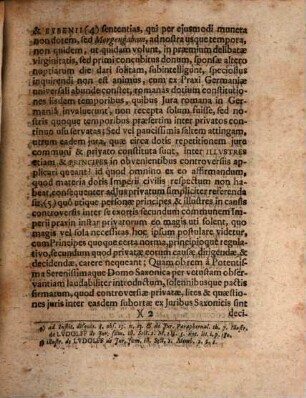 & EYBENII (4) sententias, qui per ejusmodi munera
non dotem, sed Morgengabam, ad nostra usque tempora,
non quidem, ut quidam volunt, in præmium delibatæ
virginitatis, sed primi concubitus donum, sponsæ altero
nuptiarum die dari solitam, subintelligunt, speciosius
inquirendi non est animus, cum præter ea Germaniæ
universali abunde constet, romanas dotium constitutio-
nes iisdem temporibus, quibus Jura romana in Germa-
niâ invaluerunt, non recepta solum fuisse, sed no-
stris quoque temporibus præsertim inter privatos con-
tinuo usu servatas; Sed vel paucissimis saltem attingam,
utrum eadem jura, quæ circa dotis repetitionem jure
communi & privato constituta sunt, inter ILLUSTRES
etiam & PRINCIPES in obvenientibus controversiis appli-
cari queant? id quod omnino ex eo affirmandum,
quod materia dotis Imperii civilis respectum non ha-
beat, consequenter ad jus privatum simpliciter referenda
sit, (5) quo utique personæ principes & illustres in causis
controversis inter se exortis secundum communem Impe-
rii praxin instar privatorum eo magis uti solent, quo
magis vel ista necessitas hoc ipsum postulare videtur,
cum Principes quoque certa norma, principioque regula-
tivo, secundum quod privatæ eorum causæ, dirigendæ, &
decidendæ, carere nequeant; Quam ob rem à Potentissi-
ma Serenissimaque Domo Saxonica per vetustam obser-
vantiam laudabiliter introductum, solennibusque pactis
firmatum, quod controversiæ privatæ, lites & quæstio-
nes juris inter easdem subortæ ex Juribus Saxonicis sint
X 2 deci-